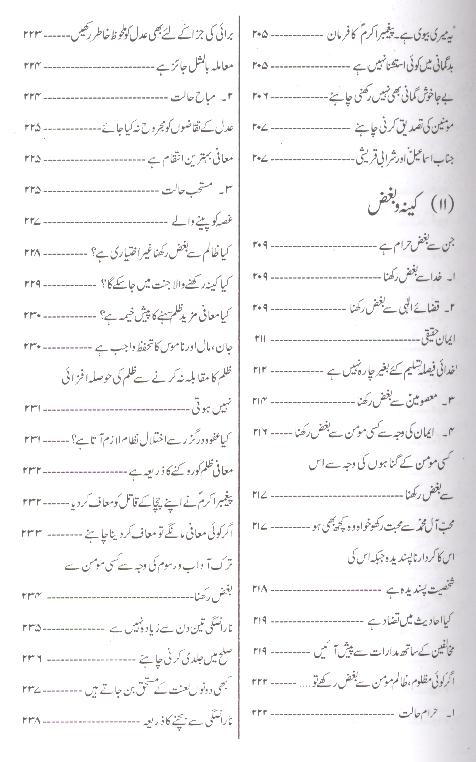 یہ میری بیوی ہے۔ پیغمبر اکرمؐ کا فرمان ---------- ۲۰۵
بدگمانی میں کوئی استثنا نہیں ہے ---------- ۲۰۵
بے جا خوش گمانی بھی نہیں رکھنی چاہئے ---------- ۲۰۶
مومنین کی تصدیق کرنی چاہئے ---------- ۲۰۷
جناب اسماعیلؑ اور شرابی قریشی ---------- ۲۰۷
(۱۱) کینہ و بغض
جن سے بغض حرام ہے ---------- ۲۰۹
۱۔ خدا سے بغض رکھنا ---------- ۲۰۹
۲۔ قضائے الٰہی سے بغض رکھنا ---------- ۲۰۹
ایمان حقیقی ---------- ۲۱۱
خدائی فیصلہ تسلیم کئے بغیر چارہ نہیں ہے ---------- ۲۱۲
۳۔ معصومینؑ سے بغض رکھنا ---------- ۲۱۴
۴۔ ایمان کی وجہ سے کسی مومن سے بغض رکھنا ----- ۲۱۶
کسی مومن کے گناہوں کی وجہ سے اس
سے بغض رکھنا ---------- ۲۱۷
محبّ آل محمدؐ سے محبت رکھو خواہ وہ کچھ بھی ہو ------ ۲۱۷
اس کا کردار ناپسندیدہ جبکہ اس کی
شخصیت پسندیدہ ہے ---------- ۲۱۸
کیا احادیث میں تضاد ہے ---------- ۲۱۹
مخالفین کے ساتھ مدارات سے پیش آئیں ---------- ۲۱۹
اگر کوئی مظلوم، ظالم مومن سے بغض رکھے تو.... ----- ۲۲۲
۱۔ حرام حالت ---------- ۲۲۲
برائی کی جزا کے لئے بھی عدل کو ملحوظ خاطر رکھیں ------ ۲۲۳
معاملہ بالمثل جائز ہے ---------- ۲۲۴
۲۔ مباح حالت ---------- ۲۲۴
عدل کے تقاضوں کو مجروح نہ کیا جائے ---------- ۲۲۵
معافی بہترین انتقام ہے ---------- ۲۲۵
۳۔ مستحب حالت ---------- ۲۲۵
غصہ کو پینے والے ---------- ۲۲۷
کیا ظالم سے بغض رکھنا غیر اختیاری ہے؟ ---------- ۲۲۸
کیا کینہ رکھنے والا جنت میں جاسکے گا؟ ---------- ۲۲۹
کیا معافی مزید ظلم سہنے کا پیش خیمہ ہے؟ ---------- ۲۳۰
جان، مال اور ناموس کا تحفظ واجب ہے ---------- ۲۳۰
ظلم کا مقابلہ نہ کرنے سے ظلم کی حوصلہ افزائی
نہیں ہوتی ---------- ۲۳۱
کیا عفو و درگزر سے اختلال نظام لازم آتا ہے؟ ------ ۲۳۱
معافی ظلم کو روکنے کا ذریعہ ہے ---------- ۲۳۲
پیغمبر اکرمؐ نے اپنے چچا کے قاتل کو معاف کر دیا ------ ۲۳۲
اگر کوئی معافی مانگے تو معاف کر دینا چاہئے ---------- ۲۳۳
ترک آداب و رسوم کی وجہ سے کسی مومن سے
بغض رکھنا ---------- ۲۳۴
ناراضگی تین دن سے زیادہ نہیں ہے ---------- ۲۳۵
صلح میں جلدی کرنی چاہئے ---------- ۲۳۶
کبھی دونوں لعنت کے مستحق بن جاتے ہیں ---------- ۲۳۷
ناراضگی سے بچنے کا ذریعہ ---------- ۲۳۸